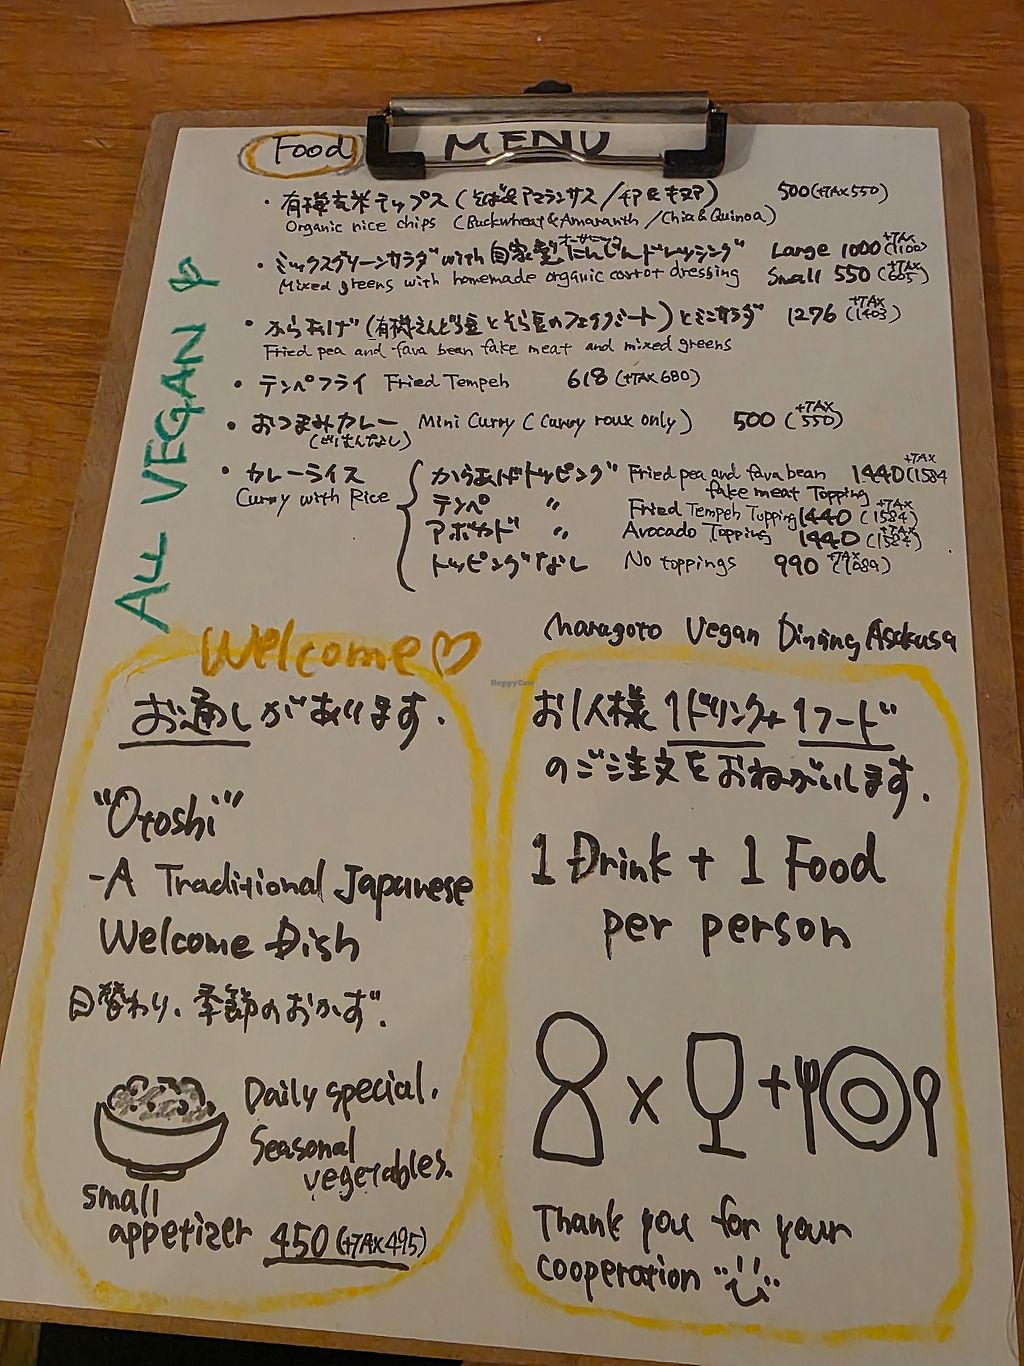 Food MENU
・有機玄米チップス (そば&アマランサス/チア&キヌア) 500(+TAX 550)
Organic rice chips (Buckwheat & Amaranth / Chia & Quinoa)
・ミックスグリーンサラダ with 自家製オーガニックにんじんドレッシング Large 1000 (+TAX 1100)
Mixed greens with homemade organic carrot dressing Small 550 (+TAX 605)
・からあげ (有機えんどう豆とそら豆のフェイクミート) とミニサラダ 1276 (+TAX 1403)
Fried pea and fava bean fake meat and mixed greens
・テンペフライ Fried Tempeh 618 (+TAX 680)
・おつまみカレー Mini Curry (Curry roux only) 500 (+TAX 550)
(ごはんなし)
・カレーライス { からあげトッピング Fried pea and fava bean 1440 (+TAX 1584
Curry with Rice fake meat Topping
テンペ 〃 Fried Tempeh Topping 1440 (+TAX 1584)
アボカド 〃 Avocado Topping 1440 (+TAX 1584)
トッピングなし No toppings 990 (+TAX 1089)
ALL VEGAN
marugoto Vegan Dining Asakusa
Welcome♡
お通しがあります.
"Otoshi"
-A Traditional Japanese
Welcome Dish
日替わり、季節のおかず.
Daily special.
Seasonal
vegetables.
small
appetizer 450 (+TAX 495)
お1人様 1ドリンク+1フード
のご注文をおねがいします.
1 Drink + 1 Food
per person
x +
Thank you for your
cooperation
HappyCow